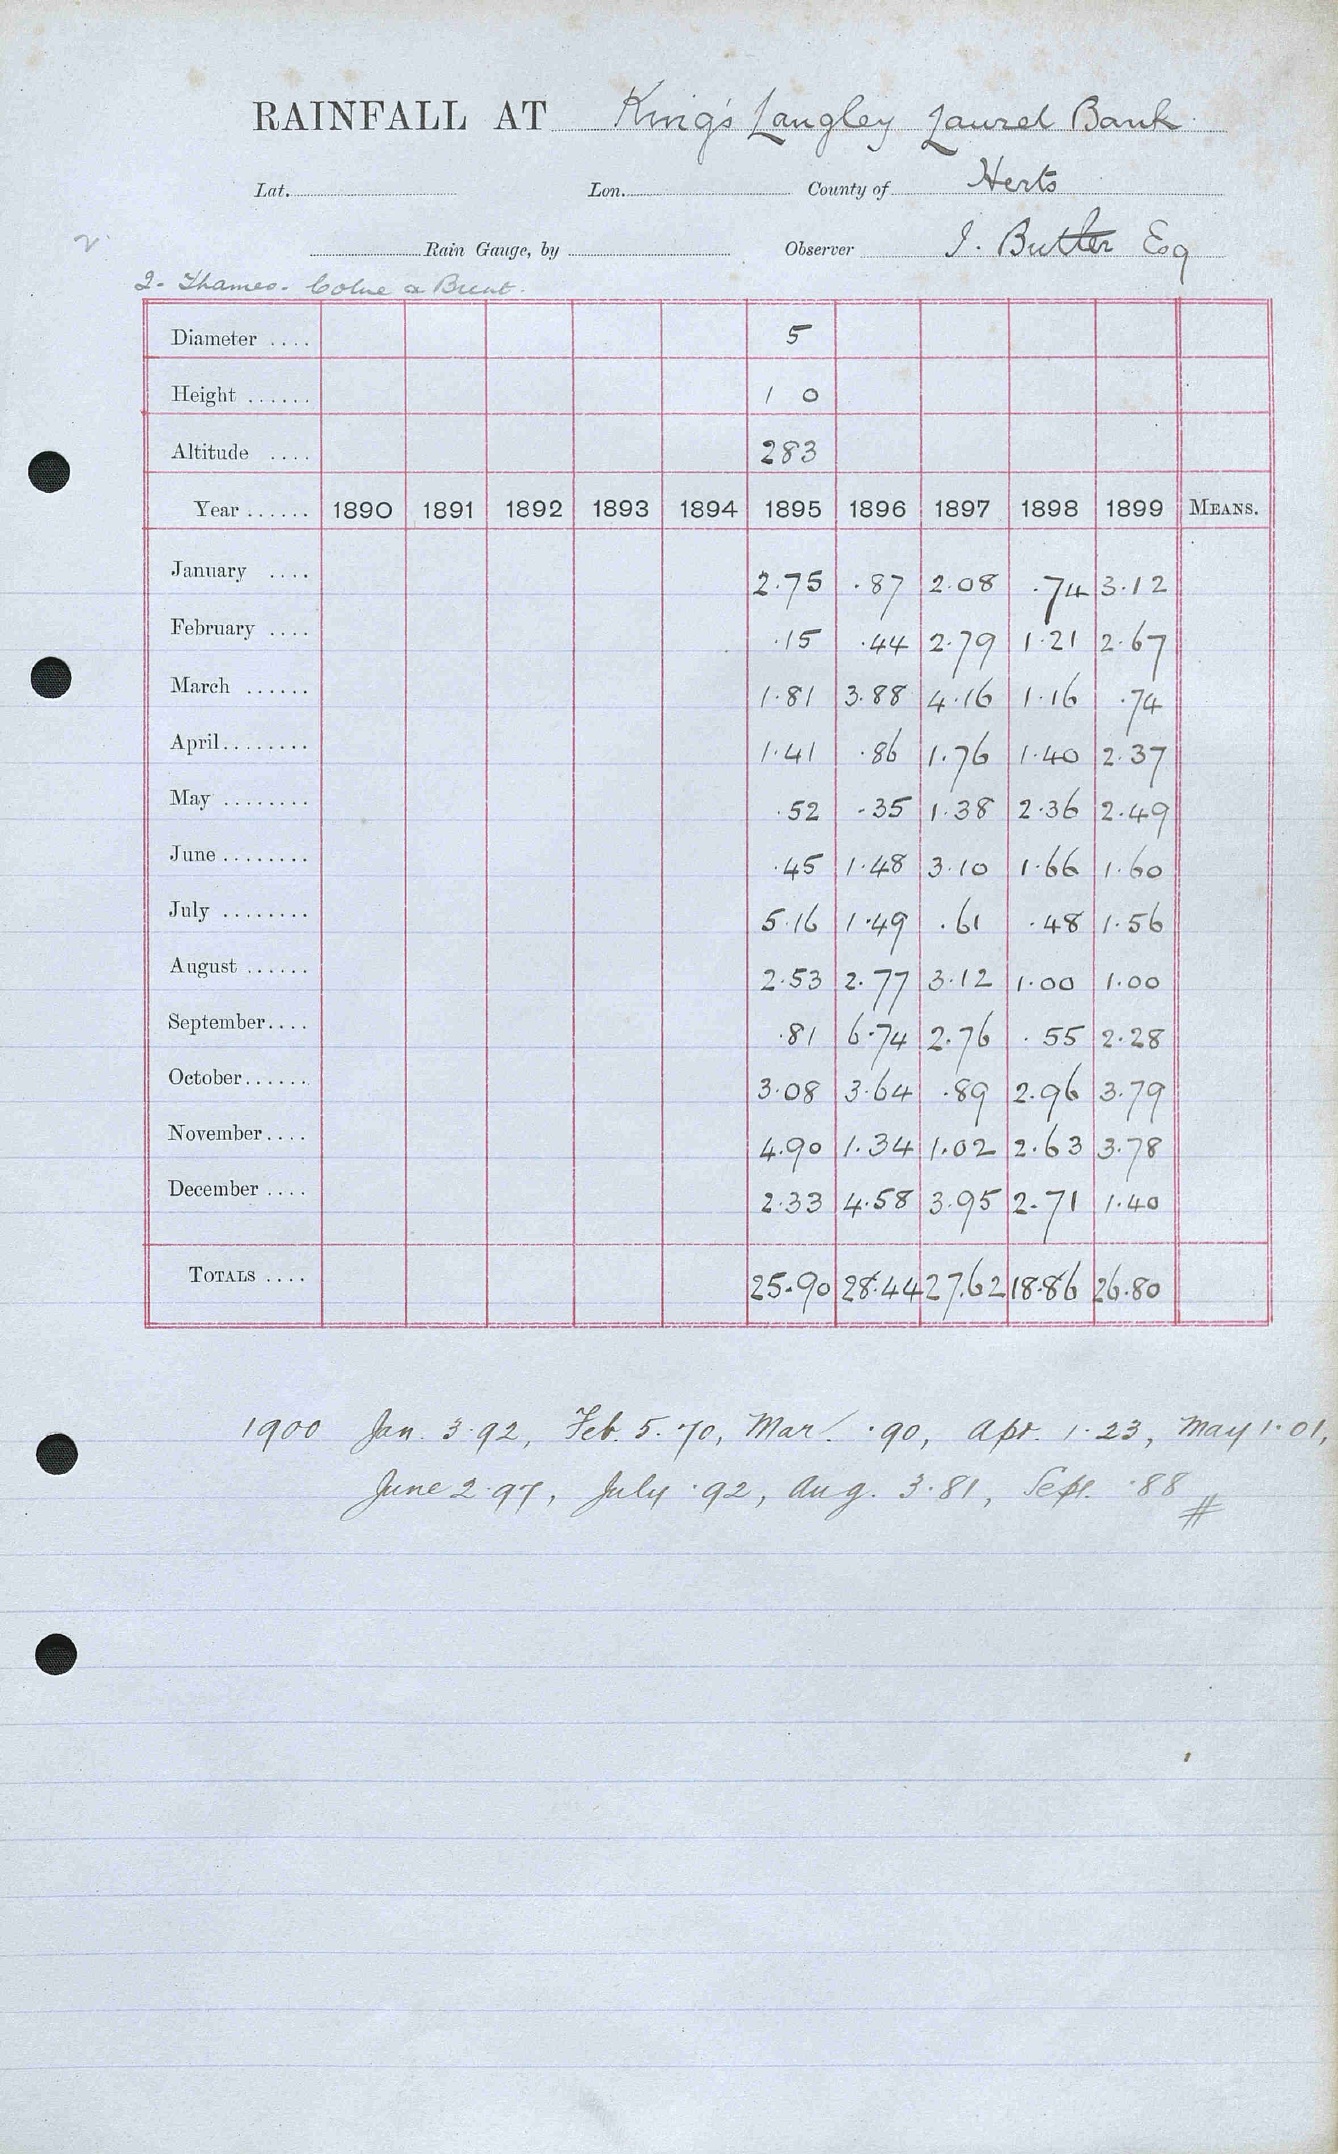 RAINFALL AT King's Langley Laurel Bank
Lat. Lon. County of Herts
Rain Gauge, by Observer J. Butler Esq
2. Thames. Colne & Brent.
Diameter .... 5
Height ...... 1 0
Altitude .... 283
Year ...... 1890 1891 1892 1893 1894 1895 1896 1897 1898 1899 MEANS.
January .... 2.75 .87 2.08 .74 3.12
February .... .15 .44 2.79 1.21 2.67
March ...... 1.81 3.88 4.16 1.16 .74
April........ 1.41 .86 1.76 1.40 2.37
May ........ .52 .35 1.38 2.36 2.49
June ........ .45 1.48 3.10 1.66 1.60
July ........ 5.16 1.49 .61 .48 1.56
August ...... 2.53 2.77 3.12 1.00 1.00
September.... .81 6.74 2.76 .55 2.28
October...... 3.08 3.64 .89 2.96 3.79
November.... 4.90 1.34 1.02 2.63 3.78
December .... 2.33 4.58 3.95 2.71 1.40
TOTALS .... 25.90 28.44 27.62 18.86 26.80
1900 Jan. 3.92, Feb. 5.70, Mar. .90, Apr. 1.23, May 1.01,
June 2.97, July .92, Aug. 3.81, Sept. .88